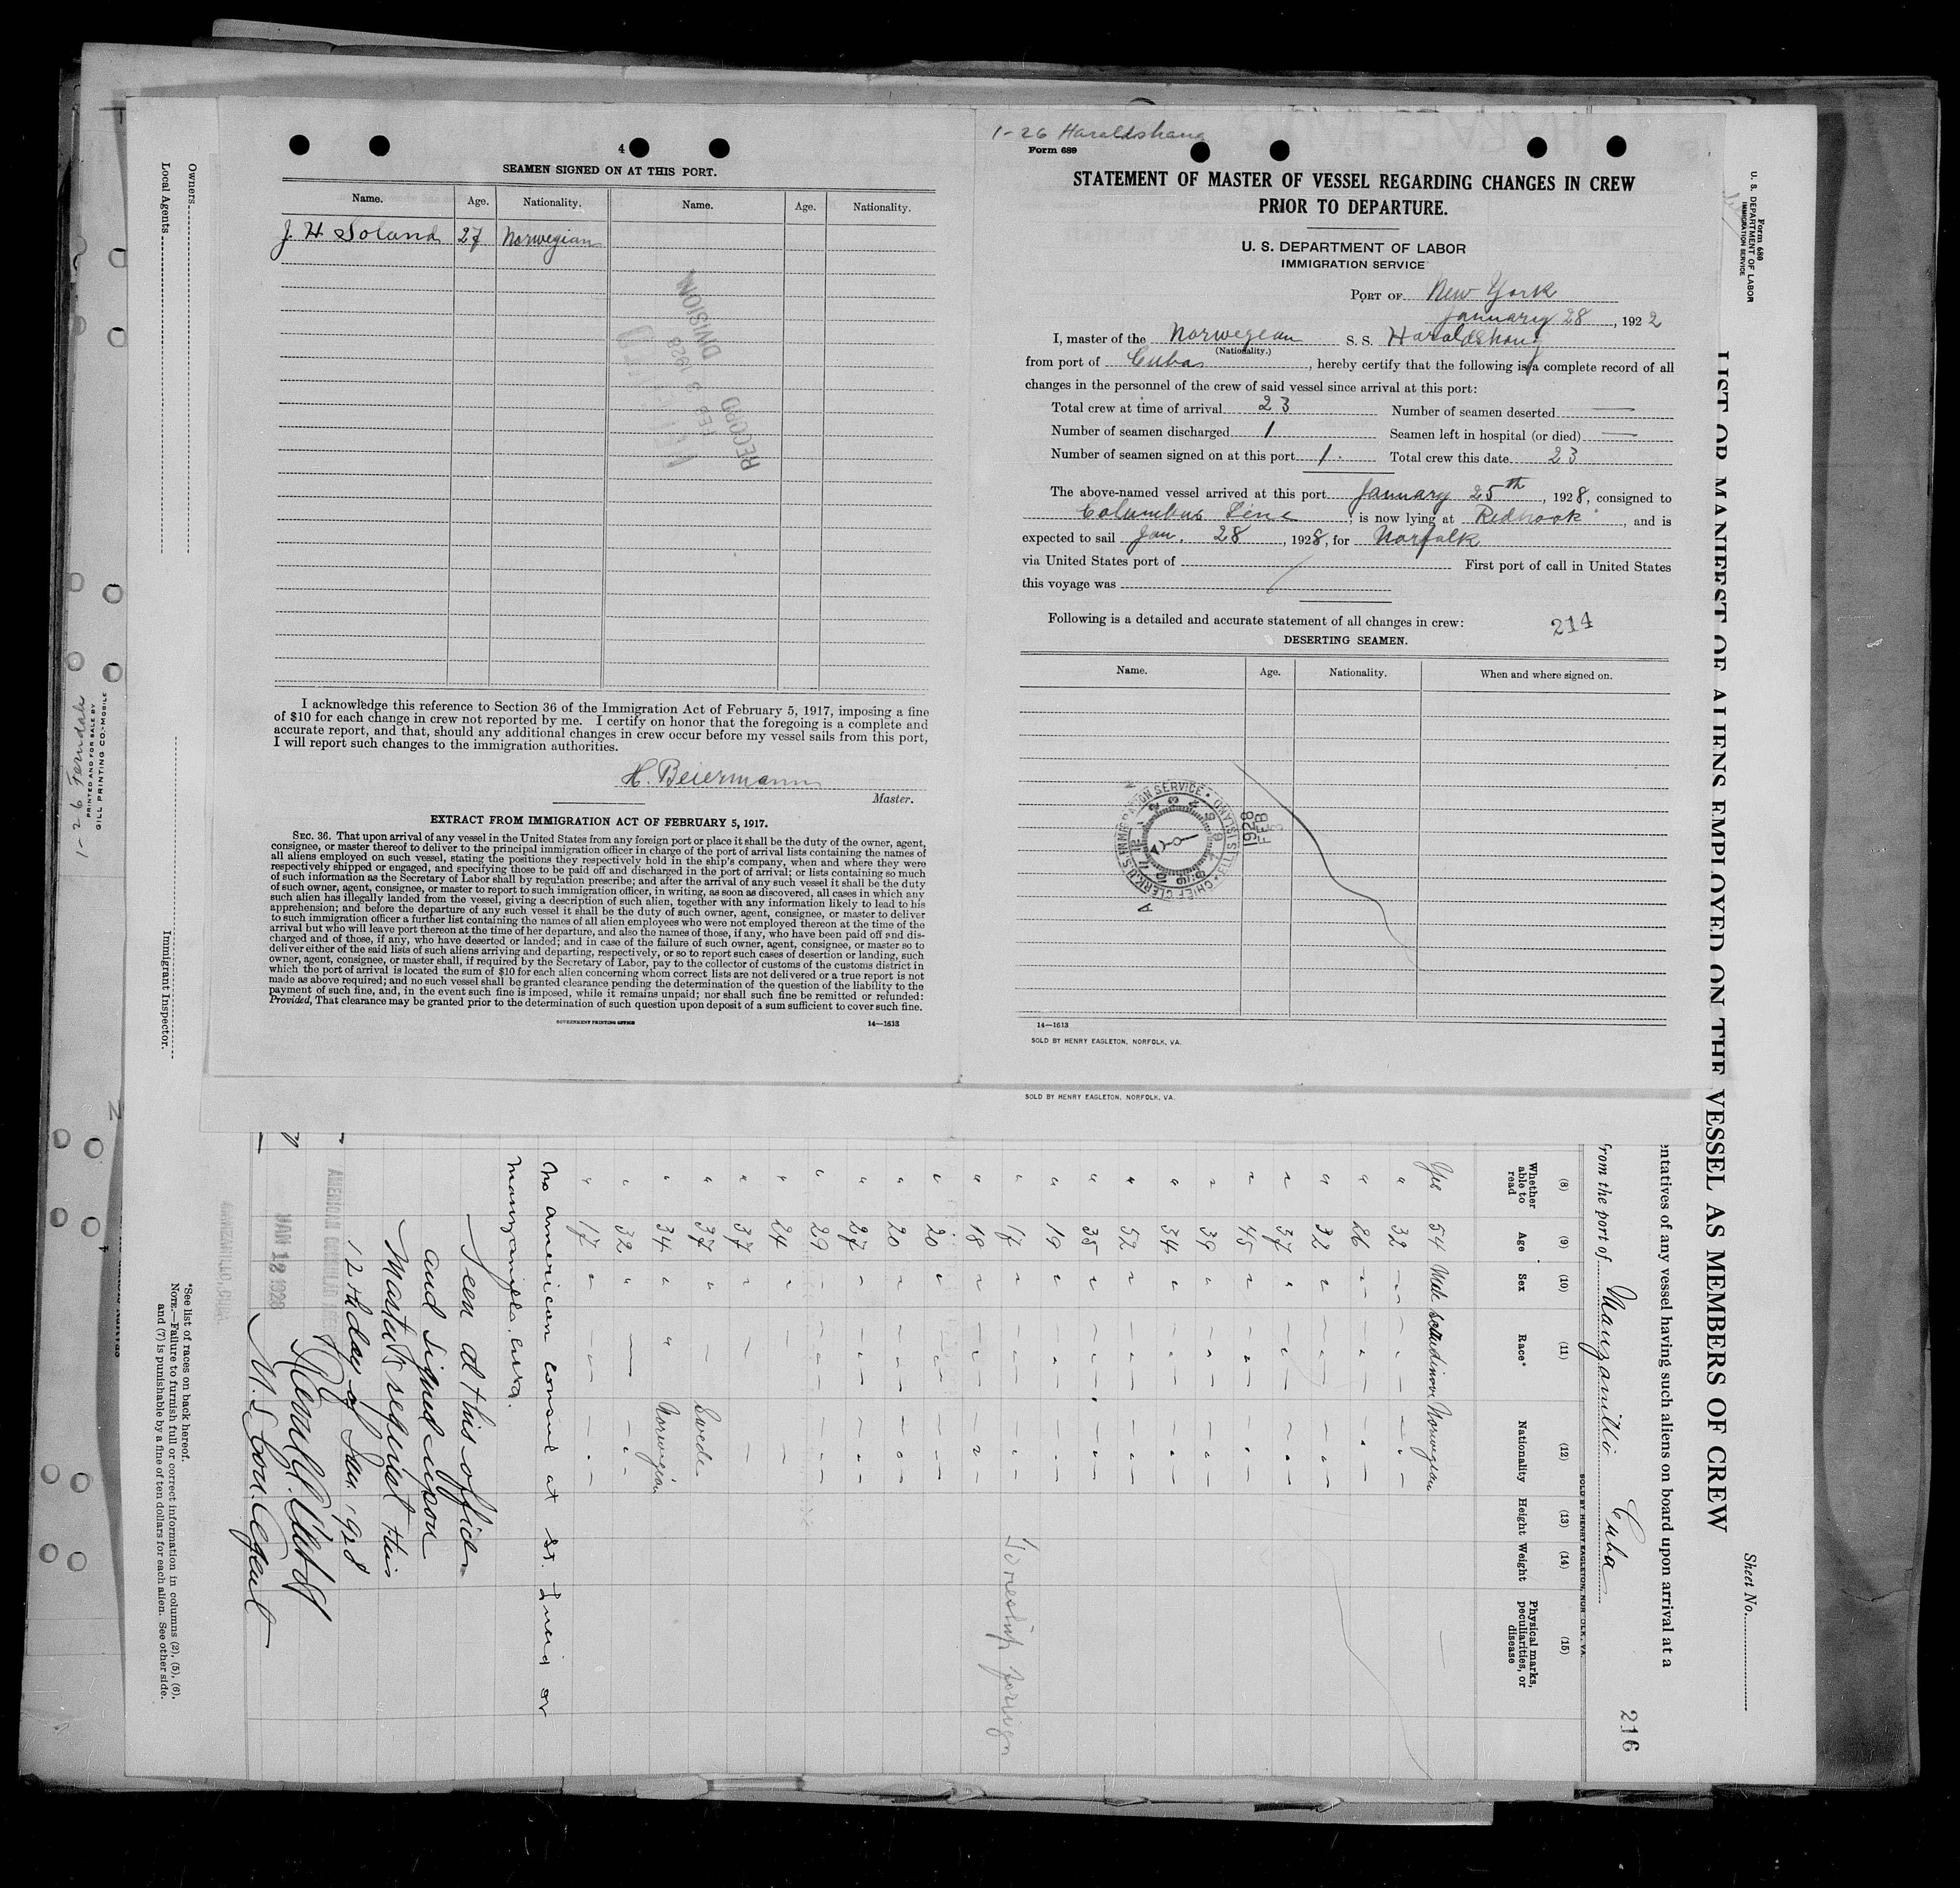 4
SEAMEN SIGNED ON AT THIS PORT.
Name. Age. Nationality. Name. Age. Nationality.
J. H. Soland 27 Norwegian
RECORD DIVISION
FEB 3 1928
I acknowledge this reference to Section 36 of the Immigration Act of February 5, 1917, imposing a fine
of $10 for each change in crew not reported by me. I certify on honor that the foregoing is a complete and
accurate report, and that, should any additional changes in crew occur before my vessel sails from this port,
I will report such changes to the immigration authorities.
H. Beiermann
Master.
EXTRACT FROM IMMIGRATION ACT OF FEBRUARY 5, 1917.
SEC. 36. That upon arrival of any vessel in the United States from any foreign port or place it shall be the duty of the owner, agent,
consignee, or master thereof to deliver to the principal immigration officer in charge of the port of arrival lists containing the names of
all aliens employed on such vessel, stating the positions they respectively hold in the ship's company, when and where they were
respectively shipped or engaged, and specifying those to be paid off and discharged in the port of arrival; or lists containing so much
of such information as the Secretary of Labor shall by regulation prescribe; and after the arrival of any such vessel it shall be the duty
of such owner, agent, consignee, or master to report to such immigration officer, in writing, as soon as discovered, all cases in which any
such alien has illegally landed from the vessel, giving a description of such alien, together with any information likely to lead to his
apprehension; and before the departure of any such vessel it shall be the duty of such owner, agent, consignee, or master to deliver
to such immigration officer a further list containing the names of all alien employees who were not employed thereon at the time of the
arrival but who will leave port thereon at the time of her departure, and also the names of those, if any, who have been paid off and dis-
charged and of those, if any, who have deserted or landed; and in case of the failure of such owner, agent, consignee, or master so to
deliver either of the said lists of such aliens arriving and departing, respectively, or so to report such cases of desertion or landing, such
owner, agent, consignee, or master shall, if required by the Secretary of Labor, pay to the collector of customs of the customs district in
which the port of arrival is located the sum of $10 for each alien concerning whom correct lists are not delivered or a true report is not
made as above required; and no such vessel shall be granted clearance pending the determination of the question of the liability to the
payment of such fine, and, in the event such fine is imposed, while it remains unpaid; nor shall such fine be remitted or refunded:
Provided, That clearance may be granted prior to the determination of such question upon deposit of a sum sufficient to cover such fine.
GOVERNMENT PRINTING OFFICE 14—1613
1-26 Haraldshaug
Form 689
STATEMENT OF MASTER OF VESSEL REGARDING CHANGES IN CREW
PRIOR TO DEPARTURE.
U. S. DEPARTMENT OF LABOR
IMMIGRATION SERVICE
PORT OF New York
January 28, 1922
I, master of the Norwegian S. S. Haraldshaug
(Nationality.)
from port of Cuba, hereby certify that the following is a complete record of all
changes in the personnel of the crew of said vessel since arrival at this port:
Total crew at time of arrival 23 Number of seamen deserted —
Number of seamen discharged 1 Seamen left in hospital (or died) —
Number of seamen signed on at this port 1. Total crew this date 23
The above-named vessel arrived at this port January 25th, 1928, consigned to
Columbus Line, is now lying at Redhook, and is
expected to sail Jan. 28, 1928, for Norfolk
via United States port of First port of call in United States
this voyage was
Following is a detailed and accurate statement of all changes in crew: 214
DESERTING SEAMEN.
Name. Age. Nationality. When and where signed on.
CHIEF CLERK U.S. IMMIGRATION SERVICE ELLIS ISLAND
1928 FEB 3
14—1613
SOLD BY HENRY EAGLETON, NORFOLK, VA.
SOLD BY HENRY EAGLETON, NORFOLK, VA.
Form 680
U. S. DEPARTMENT OF LABOR
IMMIGRATION SERVICE
Sheet No.
LIST OR MANIFEST OF ALIENS EMPLOYED ON THE VESSEL AS MEMBERS OF CREW
entatives of any vessel having such aliens on board upon arrival at a
from the port of Manzanillo Cuba
216
SOLD BY HENRY EAGLETON, NORFOLK, VA.
(8) (9) (10) (11) (12) (13) (14) (15)
Whether able to read Age Sex Race* Nationality Height Weight Physical marks, peculiarities, or disease
Yes 54 Male Scandinav Norwegian —
" 32
" 26
" 32
" 37
" 45
" 39
" 34
" 52
" 35
" 19
" 17
" 18
" 20
" 20
" 27
" 29
" 24
" 37
" 37 " Swede
" 34 " " Norwegian
" 32
" 17
To reship foreign
No american consul at St. Lucia or
Manzanilla, Cuba.
Seen at this office
and signed upon
Master's request this
12th day of Jan. 1928
U. S. Con. Agent
AMERICAN CONSULAR AGENCY
JAN 12 1928
MANZANILLO, CUBA.
*See list of races on back hereof.
NOTE.—Failure to furnish full or correct information in columns (2), (5), (6),
and (7) is punishable by a fine of ten dollars for each alien. See other side.
Owners
Local Agents
Immigrant Inspector.
1-26 Ferndale
PRINTED AND FOR SALE BY
GILL PRINTING CO.-MOBILE